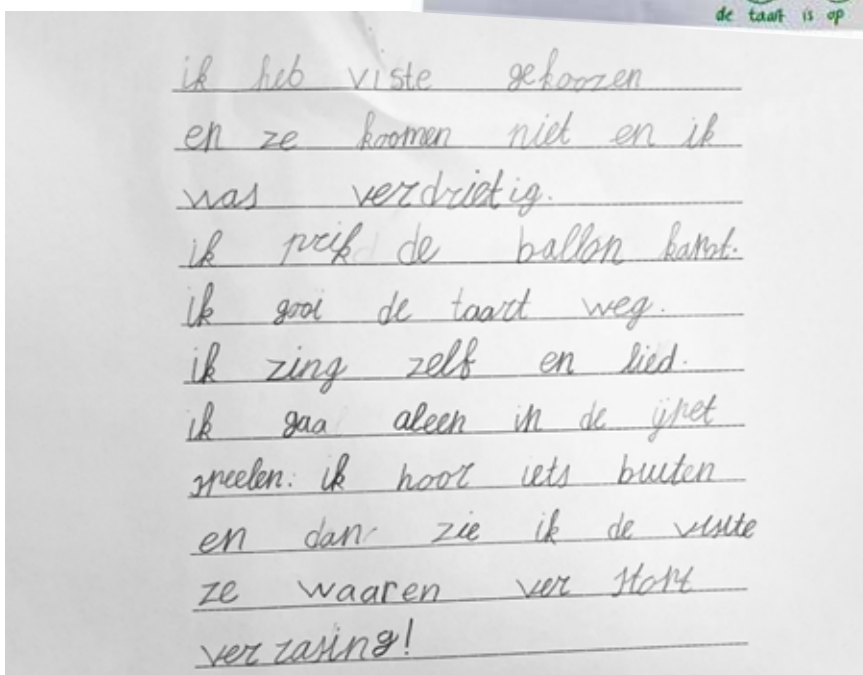 de taart is op
ik heb viste gekoozen
en ze koomen niet en ik
was verdrietig.
ik prik de ballon kapot.
ik gooi de taart weg.
ik zing zelf en lied.
ik gaa aleen in de
speelen. ik hoor iets buiten
en dan zie ik de visite
ze waaren ver stopt
ver rasing!